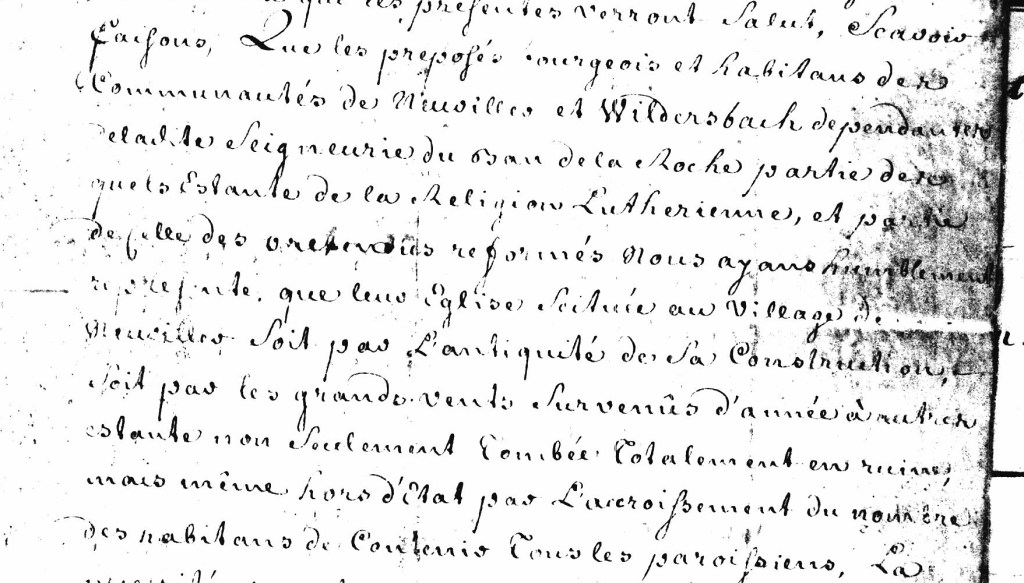 que les presentes verront Salut, Scavoir
faisons, Que les preposés bourgeois et habitans des
Communautés de Neuviller et Wildersbach dependantes
deladite Seigneurie du Ban dela Roche partie des
quels Estante de la Religion Lutherienne, et partie
de Celle des pretendus reformés Nous ayans humblement
representé, que leur Eglise Scituée au Village de
Neuviller Soit par L'antiquité de Sa Construction,
Soit par les grands vents Survenûs d'année à autres
estante non Seulement Tombée Totalement en ruine,
mais même hors d'Etat par L'accroissement du nombre
des habitans de Contenir Tous les paroissiens, La